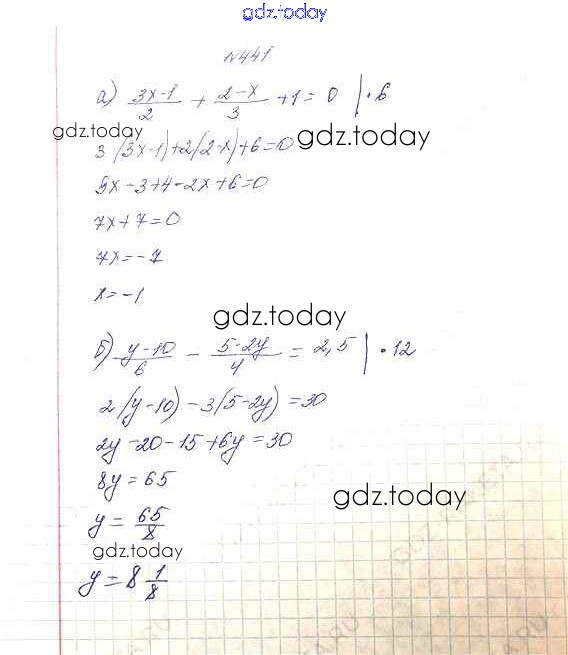 gdz.today
№441
а) (3x-1)/2 + (2-x)/3 + 1 = 0 | · 6
gdz.today
gdz.today
3(3x-1)+2(2-x)+6=0
9x-3+4-2x+6=0
7x+7=0
7x=-7
x=-1
gdz.today
б) (y-10)/6 - (5-2y)/4 = 2,5 | · 12
2(y-10)-3(5-2y)=30
2y-20-15+6y=30
8y=65
gdz.today
y = 65/8
gdz.today
y = 8 1/8